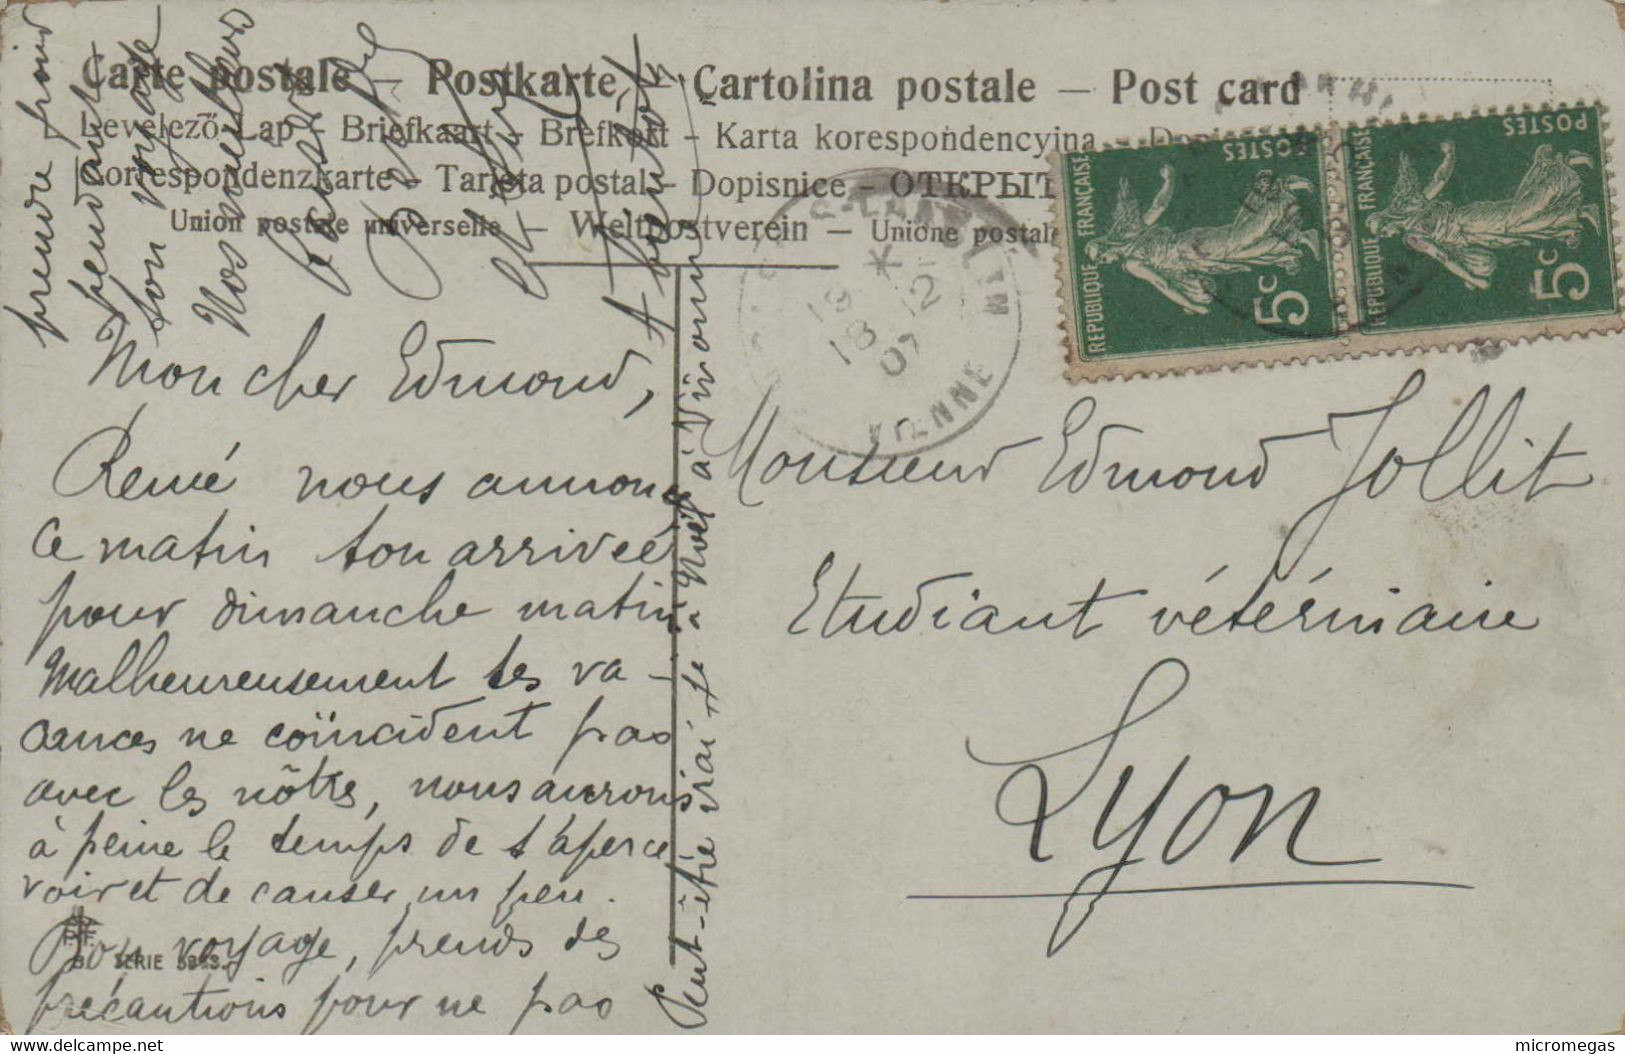 Carte postale – Postkarte – Cartolina postale – Post card
Levelező-Lap – Briefkaart – Brefkort – Karta korespondencyjna – Dopis
Correspondenzkarte – Tarjeta postal – Dopisnice – ОТКРЫТ
Union postale universelle – Weltpostverein – Unione postale
Mon cher Edmond,
René nous annonce
ce matin ton arrivée
pour dimanche matin
Malheureusement tes va-
cances ne coïncident pas
avec les nôtres, nous aurons
à peine le temps de t'aperce
voir et de causer un peu.
Bon voyage, prends des
précautions pour ne pas
prendre froid
pendant
ton voyage
Nos meilleurs
baisers
A bientôt
Peut-être ira-t-
à Noël à Vivonne
SERIE
Monsieur Edmond Jollit
Etudiant vétérinaire
Lyon
19 *
18 12
07
VIENNE
POSTES
REPUBLIQUE FRANÇAISE
5c
POSTES
REPUBLIQUE FRANÇAISE
5c
https://www.delcampe.net
micromegas